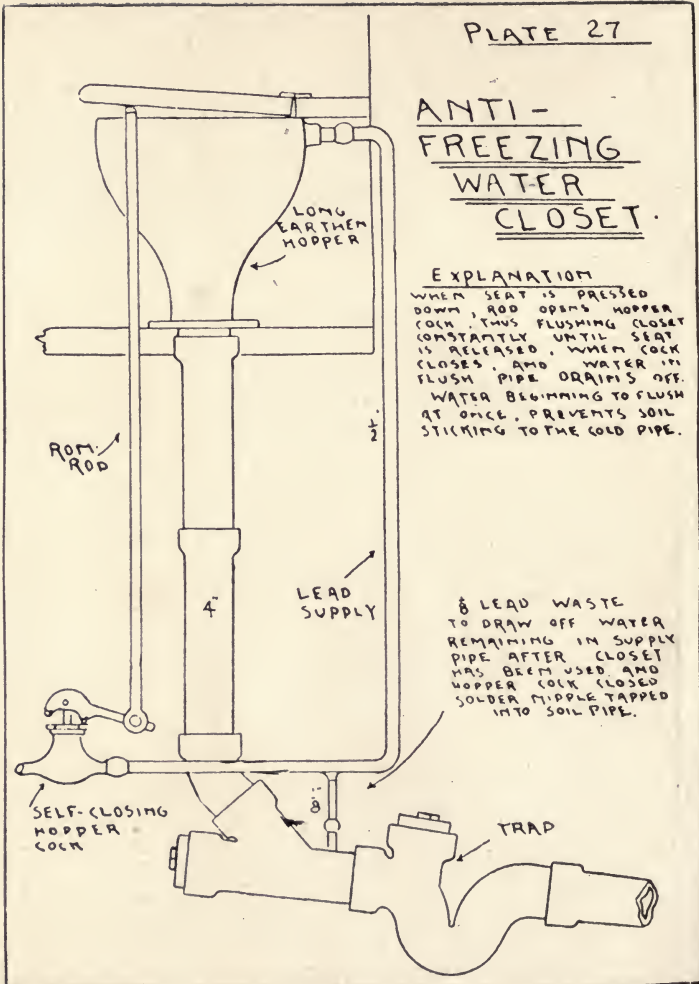 PLATE 27
ANTI-
FREEZING
WATER
CLOSET.
EXPLANATION
WHEN SEAT IS PRESSED
DOWN, ROD OPENS HOPPER
COCK, THUS FLUSHING CLOSET
CONSTANTLY UNTIL SEAT
IS RELEASED, WHEN COCK
CLOSES, AND WATER IN
FLUSH PIPE DRAINS OFF.
WATER BEGINNING TO FLUSH
AT ONCE, PREVENTS SOIL
STICKING TO THE COLD PIPE.
LONG
EARTHEN
HOPPER
ROM.
ROD
1/2"
4"
LEAD
SUPPLY
LEAD WASTE
TO DRAW OFF WATER
REMAINING IN SUPPLY
PIPE AFTER CLOSET
HAS BEEN USED AND
HOPPER COCK CLOSED
SOLDER NIPPLE TAPPED
INTO SOIL PIPE.
SELF-CLOSING
HOPPER
COCK
TRAP